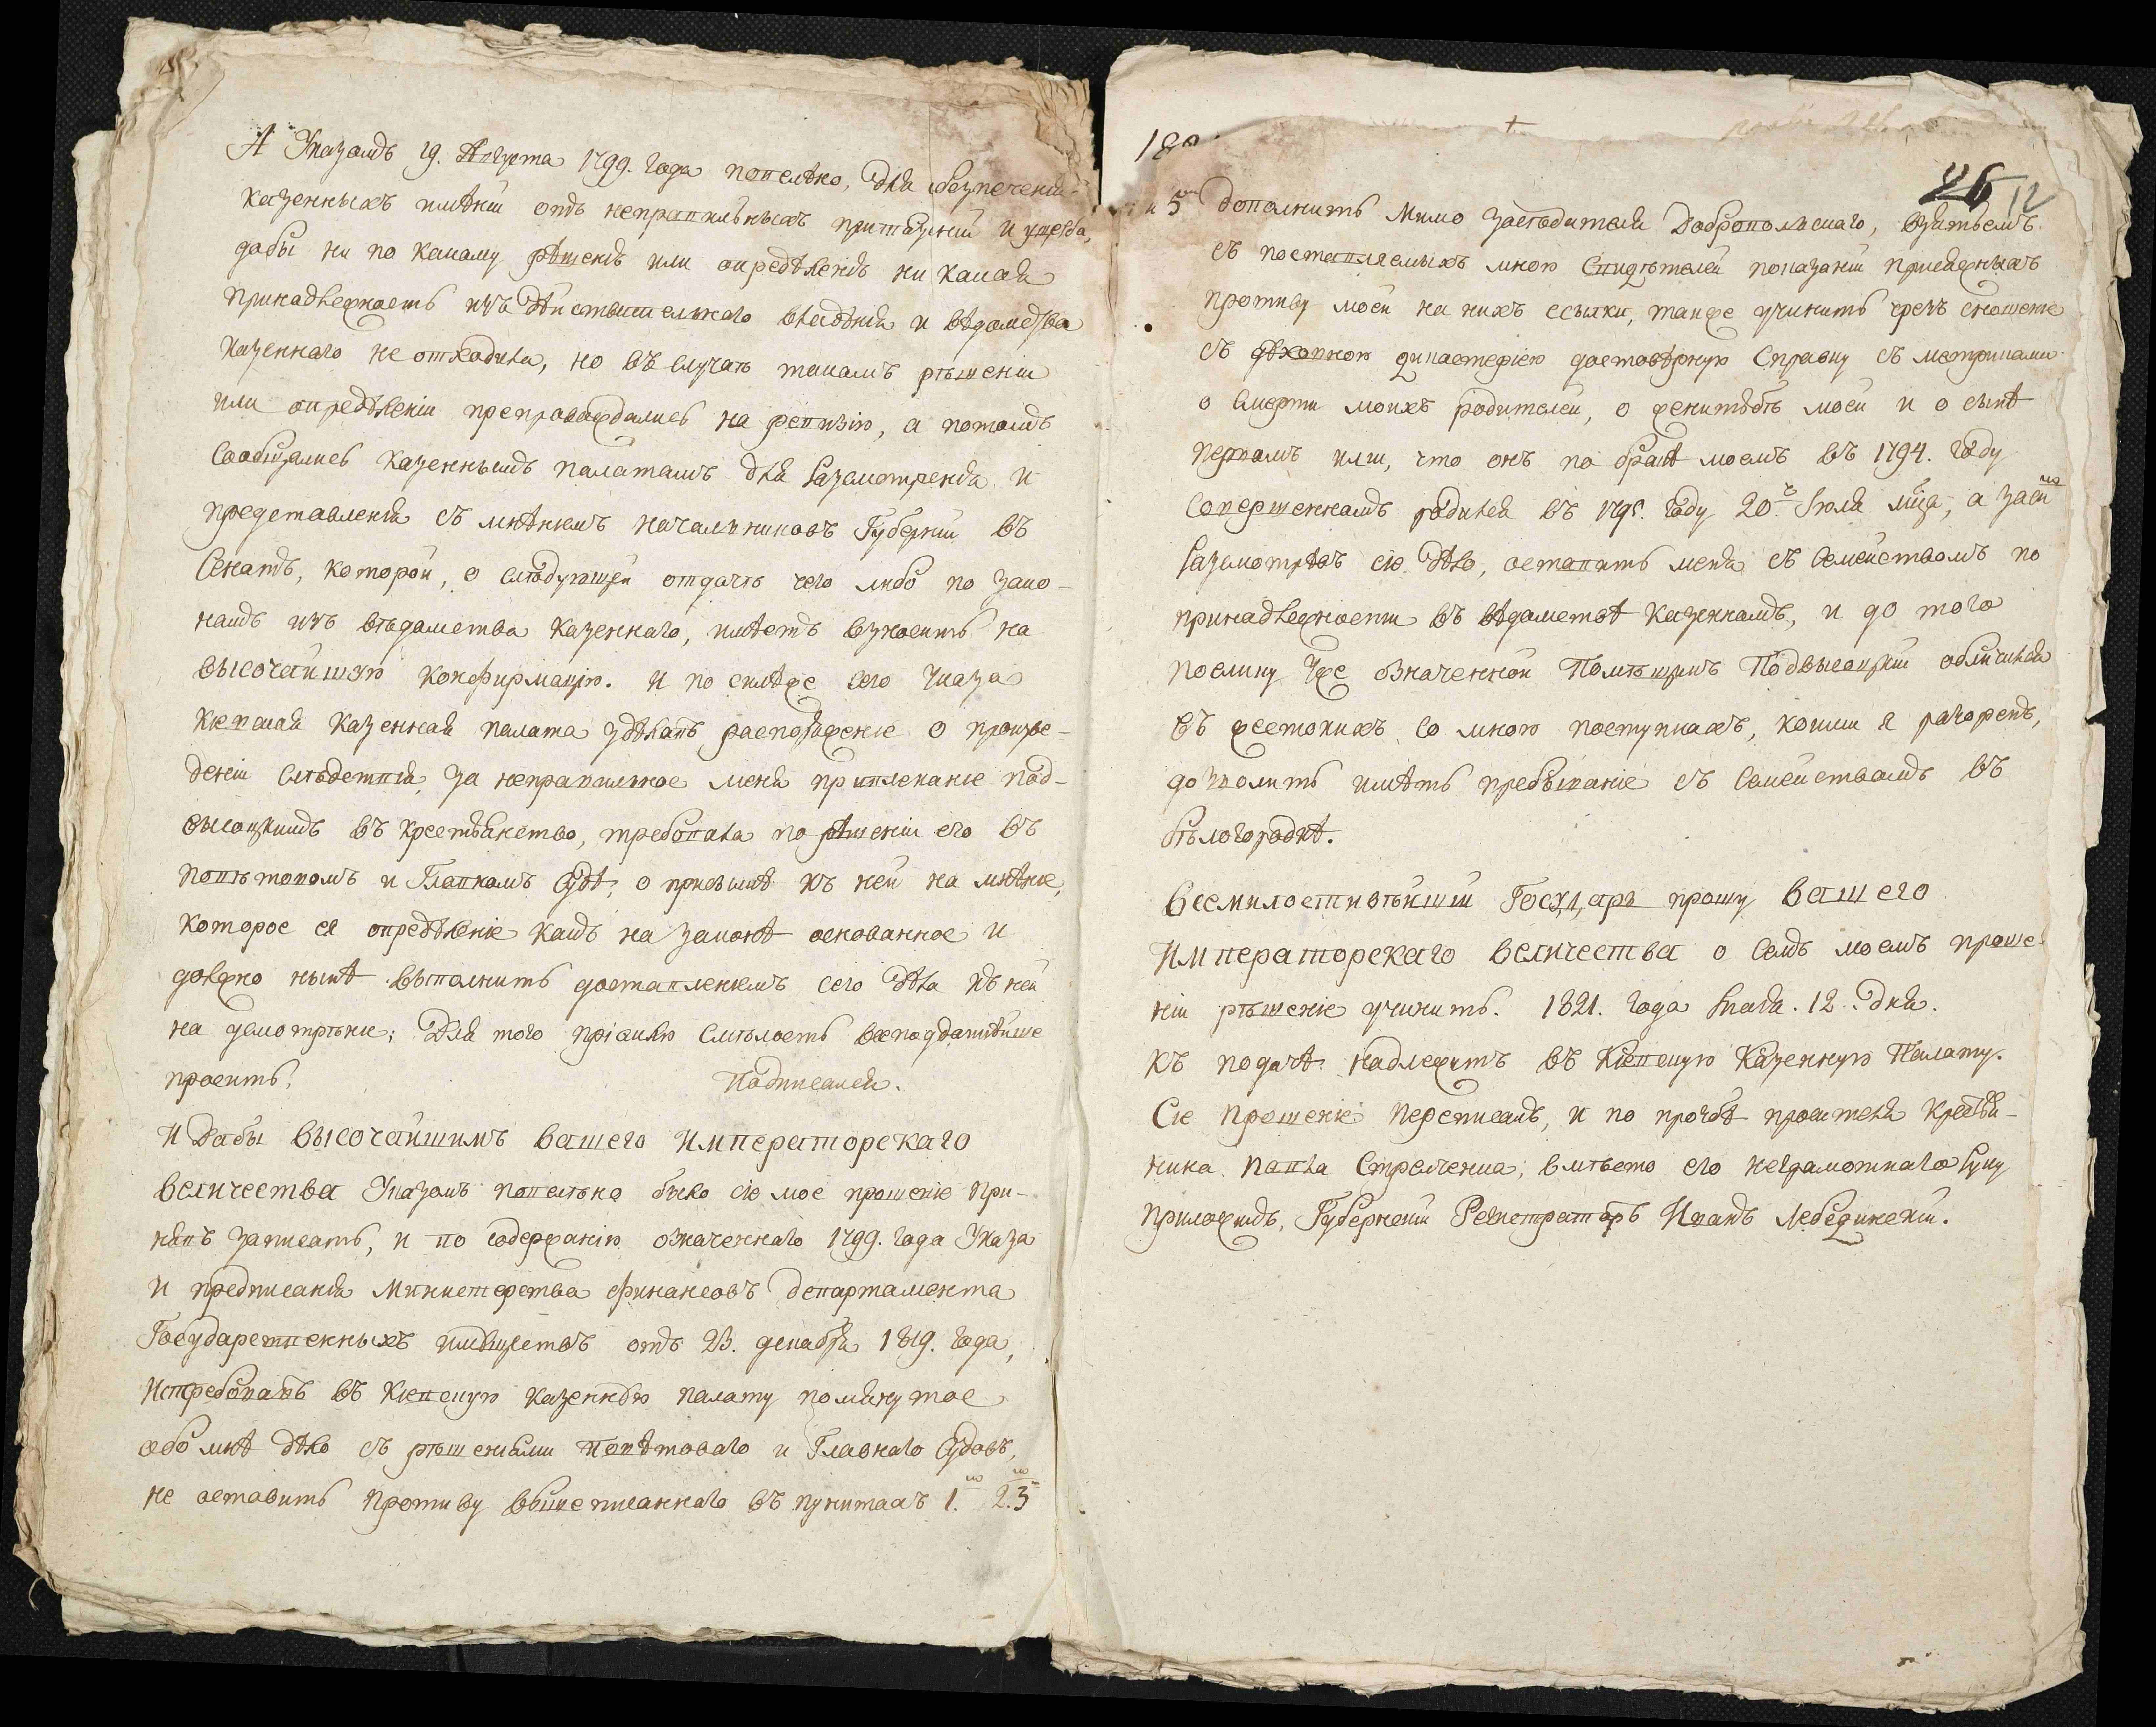 А Указомъ 19. Августа 1799. года повелѣно, для обезпеченія
казенныхъ имѣній отъ неправильныхъ притязаній и ущерба,
дабы ни по какому рѣшенію или опредѣленію ни какая
принадлежность изъ дѣйствительнаго владѣнія и вѣдомства
казеннаго не отходила, но въ случаѣ такомъ рѣшеніи
или опредѣленіи препровождались на ревизію, а потомъ
сообщались казеннымъ палатамъ для разсмотренія и
представленія съ мнѣніемъ начальниковъ Губерніи въ
Сенатъ, которой, о слѣдующей отдачѣ чего либо по зако-
намъ изъ вѣдомства казеннаго, имѣетъ взносить на
высочайшую конфирмацію. И по силѣ же сего Указа
Кіевская казенная палата здѣлавъ распоряженіе о произве-
деніи слѣдствія, за неправильное меня привлеканіе Под-
высоцкимъ въ крестьянство, требовала по рѣшеніи его въ
Повѣтовомъ и Главномъ Судѣ, о присылкѣ къ ней на мнѣніе,
которое ея опредѣленіе какъ на законѣ основанное и
должно нынѣ выполнить доставленіемъ сего дѣла къ ней
на усмотрѣніе; Для того пріемлю смѣлость всеподданнѣйше
просить, Подписался.
И Дабы высочайшимъ вашего императорскаго
величества Указомъ повелѣно было сіе мое прошеніе при-
нявъ записать, и по содержанію означеннаго 1799. года Указа
и предписанія Министерства финансовъ департамента
Государственныхъ имуществъ отъ 23. декабря 1819. года,
истребовавъ въ Кіевскую казенную палату помянутое
обо мнѣ дѣло съ рѣшеніями Повѣтоваго и Главнаго Судовъ,
не оставить противу вышеписаннаго въ пунктахъ 1. 2. 3
и 5 дополнить мимо заседателя Добропольскаго, взятьемъ
съ поставляемыхъ мною свидѣтелей показаній присяжныхъ
противу моей на нихъ ссылки, также учинить чрезъ сношеніе
съ духовною дикастеріею достовѣрную справку съ метриками
о смерти моихъ родителей, о женитьбѣ моей и о сынѣ
первомъ или, что онъ по бракѣ моемъ въ 1794. году
совершенномъ родился въ 1795. году 20. Іюля мца, а засим
разсмотрѣвъ сіе дѣло, оставить меня съ семействомъ по
принадлежности въ вѣдомствѣ казенномъ, и до того
поелику уже означенной Помѣщикъ Подвысоцкій обличился
въ жестокихъ со мною поступкахъ, коими я разоренъ,
дозволить имѣть пребываніе съ семействомъ въ
бѣлогородкѣ.
Всемилостивѣйшій Государь прошу вашего
императорскаго величества о семъ моемъ проше-
ніи рѣшеніе учинить. 1821. года Маія. 12. дня.
Къ подачѣ надлежитъ въ Кіевскую Казенную Палату.
Сіе прошеніе переписалъ, и по прозбѣ просителя крестья-
нина Павла Стрельченка, вмѣсто его неграмотнаго руку
приложилъ, Губернскій Регистраторъ Иванъ Лебединскій.